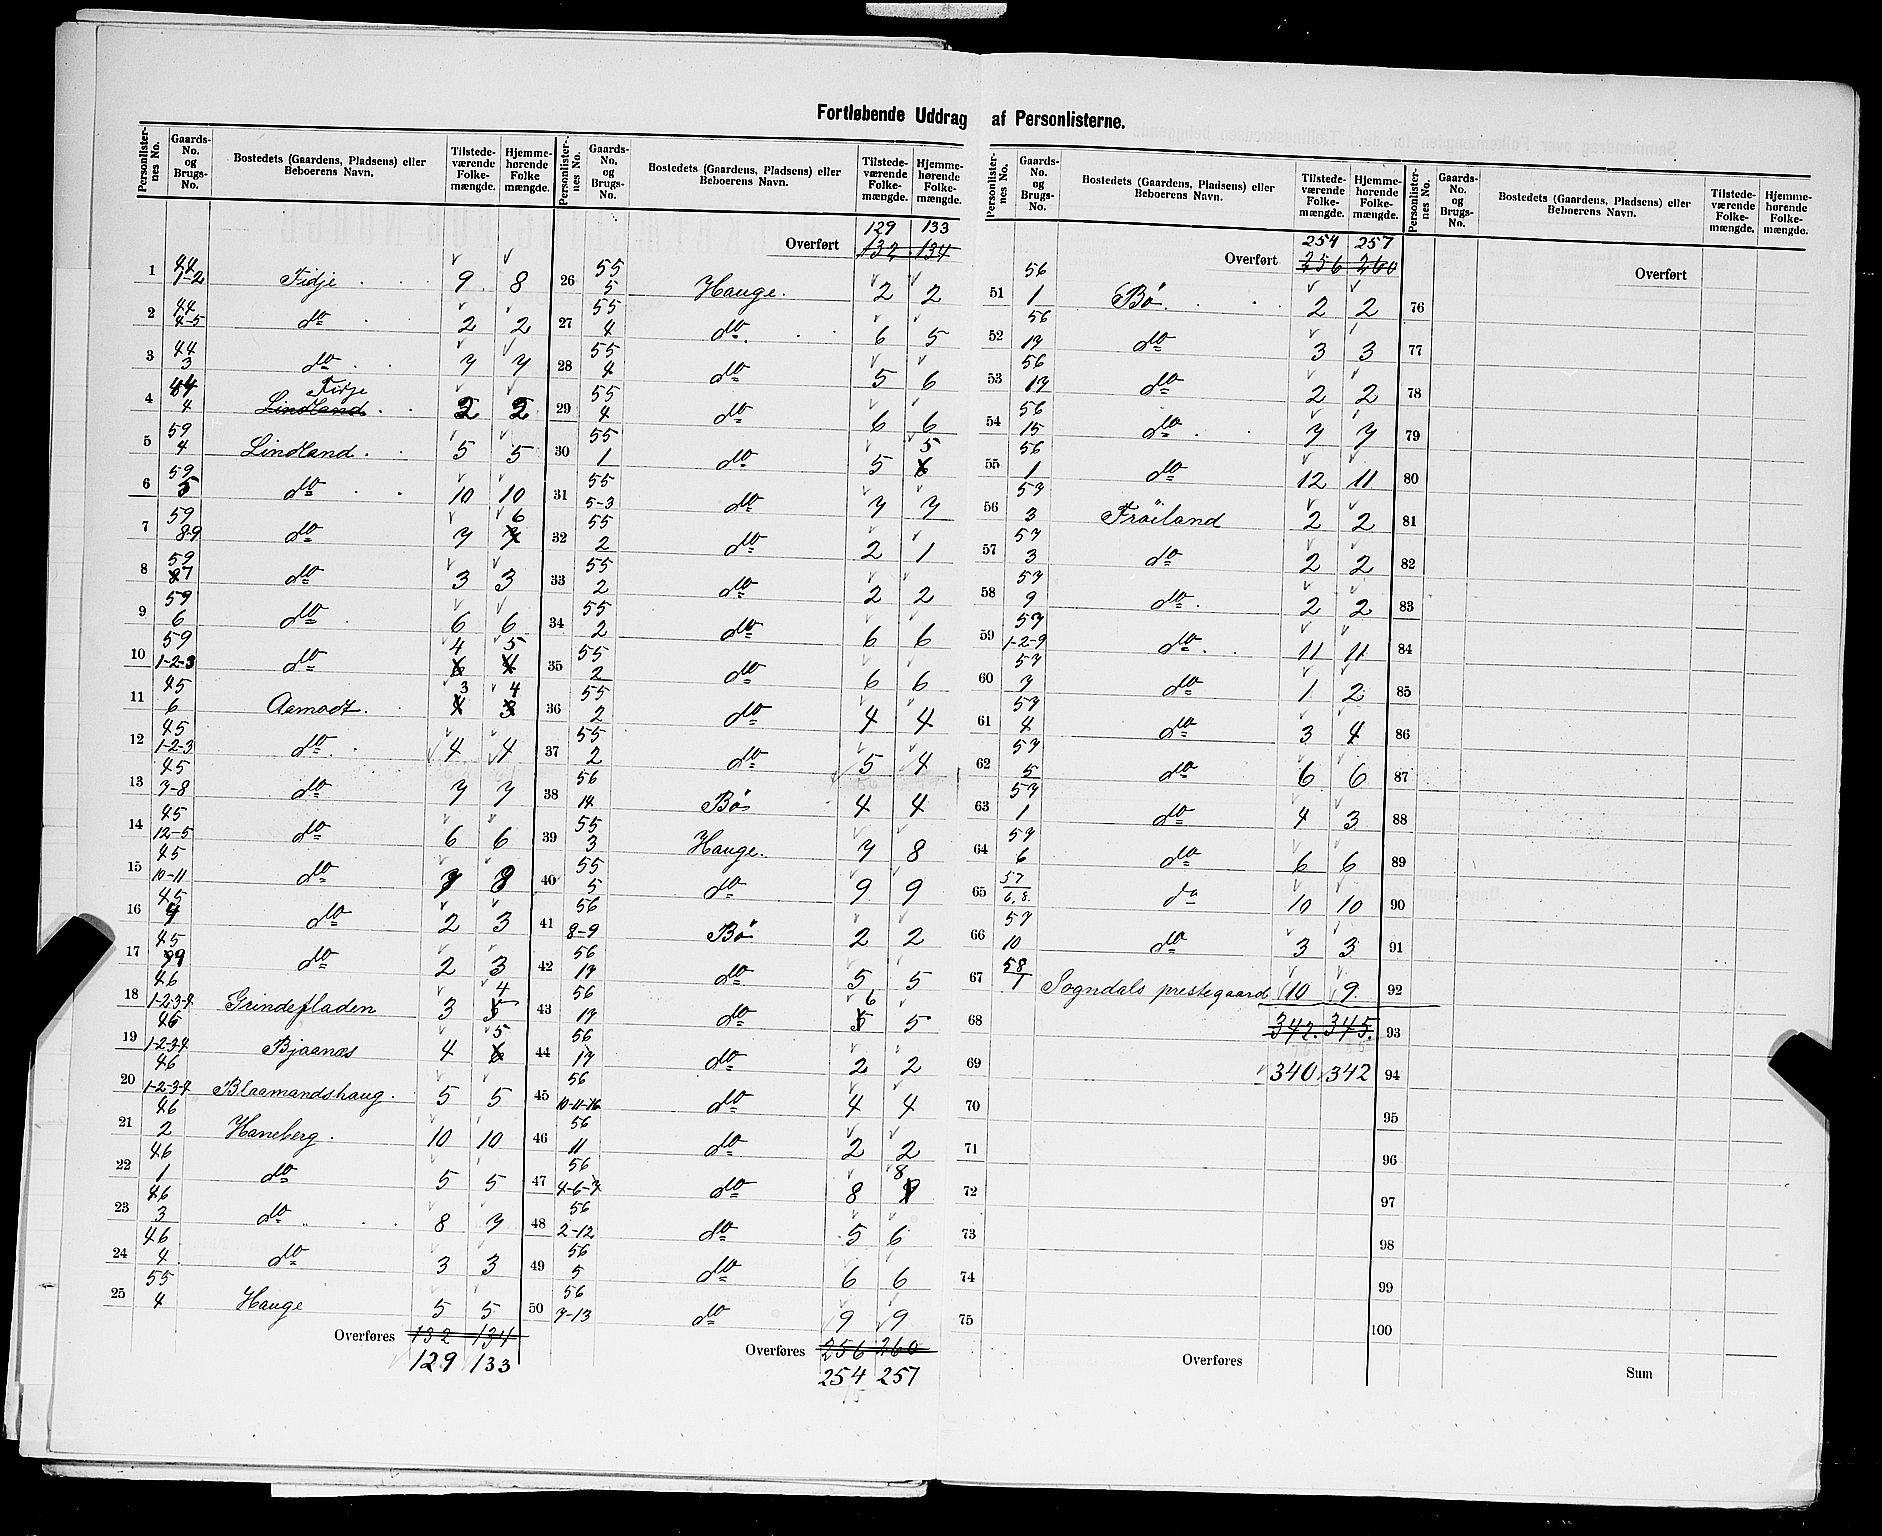 Fortløbende Uddrag af Personlisterne.
Personlisternes No. | Gaards-No. og Brugs-No. | Bostedets (Gaardens, Pladsens) eller Beboerens Navn. | Tilstedeværende Folkemængde. | Hjemmehørende Folkemængde.
1 | 44 1-2 | Fidje | 9 | 8
2 | 44 4-5 | do | 2 | 2
3 | 44 3 | do | 7 | 7
4 | 44 4 | Lindland Fidje | 2 | 2
5 | 59 4 | Lindland | 5 | 5
6 | 59 5 | do | 10 | 10
7 | 59 8-9 | do | 7 | 7 6
8 | 59 7 | do | 3 | 3
9 | 59 6 | do | 6 | 6
10 | 59 1-2-3 | do | 6 4 | 4 5
11 | 45 6 | Aamodt. | 4 3 | 3 4
12 | 45 1-2-3 | do | 4 | 4
13 | 45 7-8 | do | 7 | 7
14 | 45 12-5 | do | 6 | 6
15 | 45 10-11 | do | 7 | 8
16 | 45 4 | do | 2 | 3
17 | 45 9 | do | 2 | 3
18 | 46 1-2-3-4 | Grindefladen | 3 | 5 4
19 | 46 1-2-3-4 | Bjaanæs | 4 | 6 5
20 | 46 1-2-3-4 | Blaamandshaug. | 5 | 5
21 | 46 2 | Haneberg. | 10 | 10
22 | 46 1 | do | 5 | 5
23 | 46 3 | do | 8 | 7
24 | 46 4 | do | 3 | 3
25 | 55 4 | Hauge | 5 | 5
Overføres 132 134
129 133
Personlisternes No. | Gaards-No. og Brugs-No. | Bostedets (Gaardens, Pladsens) eller Beboerens Navn. | Tilstedeværende Folkemængde. | Hjemmehørende Folkemængde.
129 133
Overført 132 134
26 | 55 5 | Hauge. | 2 | 2
27 | 55 4 | do | 6 | 5
28 | 55 4 | do | 5 | 6
29 | 55 4 | do | 6 | 6
30 | 55 1 | do | 5 | 6 5
31 | 55 5-3 | do | 7 | 7
32 | 55 2 | do | 2 | 1
33 | 55 2 | do | 2 | 2
34 | 55 2 | do | 6 | 6
35 | 55 2 | do | 6 | 6
36 | 55 2 | do | 4 | 4
37 | 55 2 | do | 5 | 4
38 | 56 14 | Bø | 4 | 4
39 | 55 3 | Hauge. | 7 | 8
40 | 55 5 | do | 9 | 9
41 | 56 8-9 | Bø | 2 | 2
42 | 56 17 | do | 5 | 5
43 | 56 17 | do | 5 6 | 5
44 | 56 17 | do | 2 | 2
45 | 56 10-11-16 | do | 4 | 4
46 | 56 11 | do | 2 | 2
47 | 56 4-6-7 | do | 8 | 8
48 | 56 2-12 | do | 5 | 6
49 | 56 5 | do | 6 | 6
50 | 56 7-13 | do | 9 | 9
Overføres 256 260
254 257
Personlisternes No. | Gaards-No. og Brugs-No. | Bostedets (Gaardens, Pladsens) eller Beboerens Navn. | Tilstedeværende Folkemængde. | Hjemmehørende Folkemængde.
254 257
Overført 256 260
51 | 56 1 | Bø. | 2 | 2
52 | 56 17 | do | 3 | 3
53 | 56 17 | do | 2 | 2
54 | 56 15 | do | 7 | 7
55 | 56 1 | do | 12 | 11
56 | 57 3 | Frøiland | 2 | 2
57 | 57 3 | do | 2 | 2
58 | 57 9 | do. | 2 | 2
59 | 57 1-2-9 | do. | 11 | 11
60 | 57 7 | do | 1 | 2
61 | 57 4 | do | 3 | 4
62 | 57 5 | do | 6 | 6
63 | 57 1 | do | 4 | 3
64 | 57 6 | do | 6 | 6
65 | 57 6,8. | do | 10 | 10
66 | 57 10 | do | 3 | 3
67 | 58 1 | Sogndals prestegaard | 10 | 9
68 | 342. 345.
69 | 340 342
70
71
72
73
74
75
Overføres
Personlisternes No. | Gaards-No. og Brugs-No. | Bostedets (Gaardens, Pladsens) eller Beboerens Navn. | Tilstedeværende Folkemængde. | Hjemmehørende Folkemængde.
Overført
76
77
78
79
80
81
82
83
84
85
86
87
88
89
90
91
92
93
94
95
96
97
98
99
100
Sum